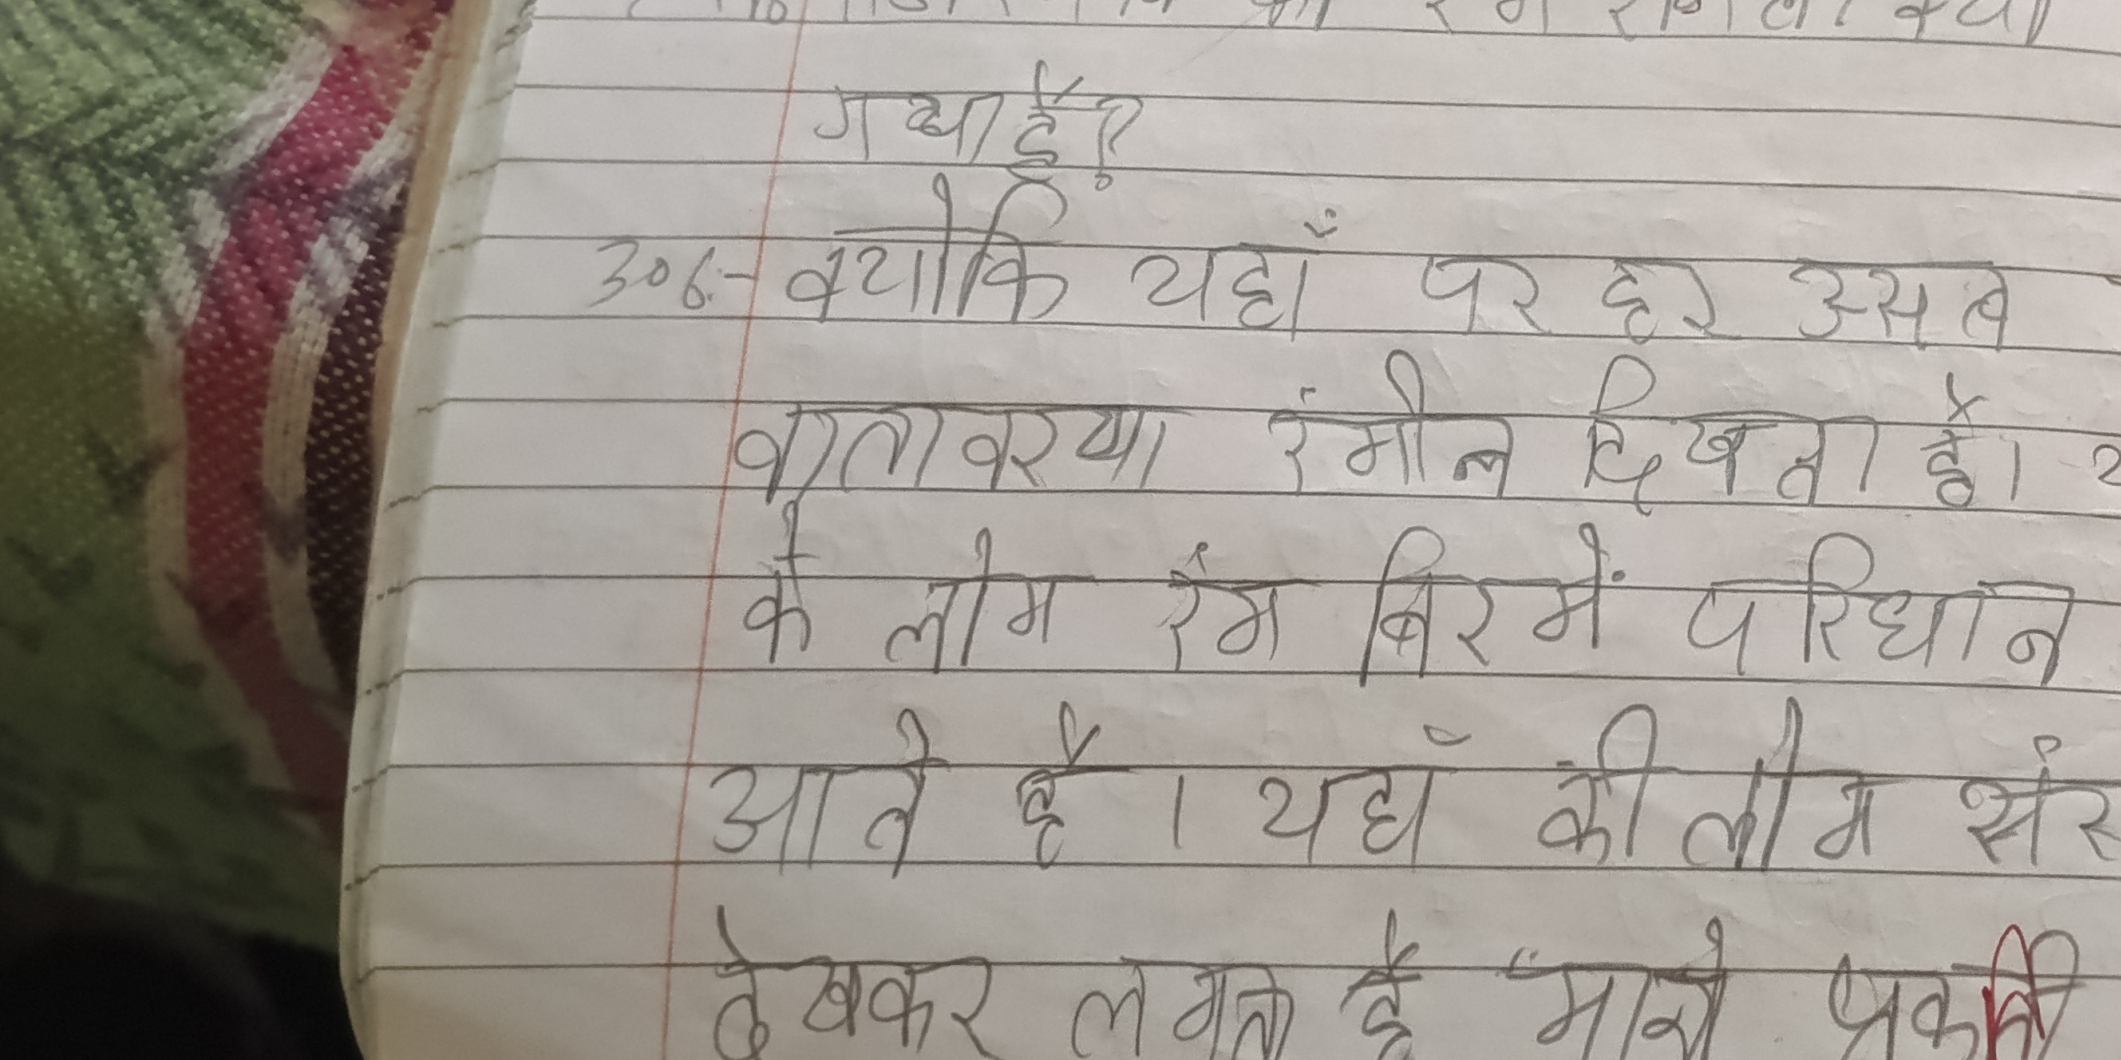 गया है?
उ०६:- क्योकि यहाँ पर हर उसत्व
वातावरया रंगीन दिखता है।
के लोग रंग बिरगें परिधान
आते है । यहाँ की लोग
देखकर लगता है मानो प्रकती